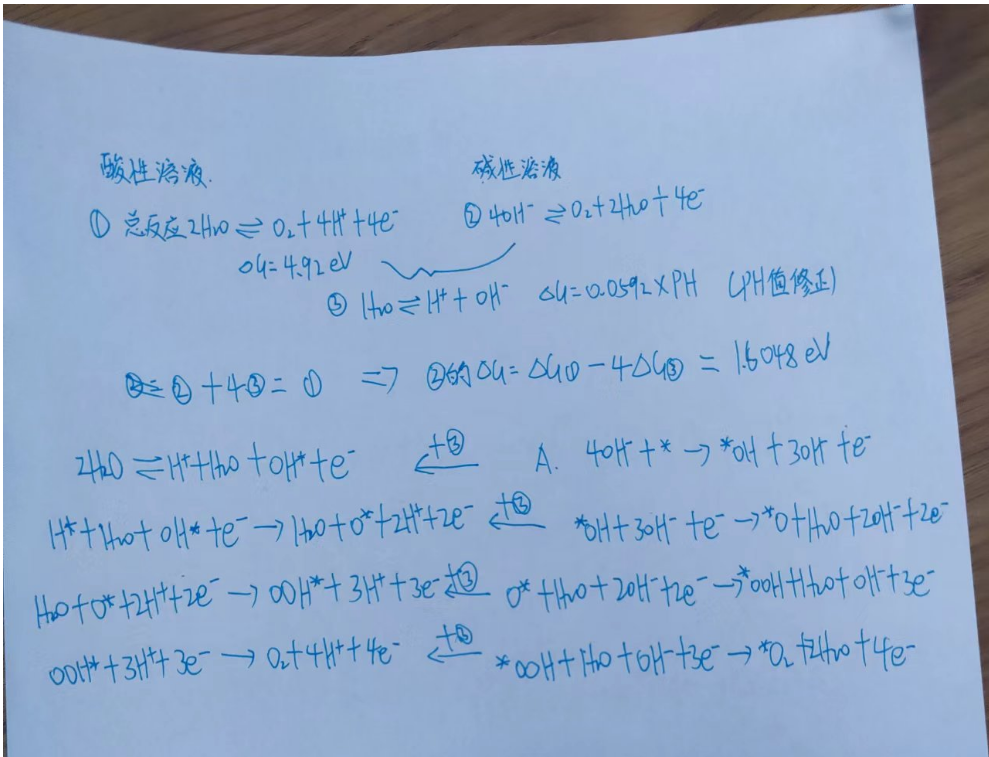 酸性溶液. 碱性溶液
① 总反应 2H₂O ⇌ O₂ + 4H⁺ + 4e⁻ ② 4OH⁻ ⇌ O₂ + 2H₂O + 4e⁻
ΔG = 4.92 eV
③ H₂O ⇌ H⁺ + OH⁻ ΔG = 0.0592 × PH (PH值修正)
② + 4③ = ① ⇒ ②的 ΔG = ΔG① − 4ΔG③ = 1.6048 eV
2H₂O ⇌ H⁺ + H₂O + OH* + e⁻ ←+③ A. 4OH⁻ + * → *OH + 3OH⁻ + e⁻
H⁺ + H₂O + OH* + e⁻ → H₂O + O* + 2H⁺ + 2e⁻ ←+③ *OH + 3OH⁻ + e⁻ → *O + H₂O + 2OH⁻ + 2e⁻
H₂O + O* + 2H⁺ + 2e⁻ → OOH* + 3H⁺ + 3e⁻ ←+③ O* + H₂O + 2OH⁻ + 2e⁻ → *OOH + H₂O + OH⁻ + 3e⁻
OOH* + 3H⁺ + 3e⁻ → O₂ + 4H⁺ + 4e⁻ ←+③ *OOH + H₂O + OH⁻ + 3e⁻ → *O₂ + 2H₂O + 4e⁻